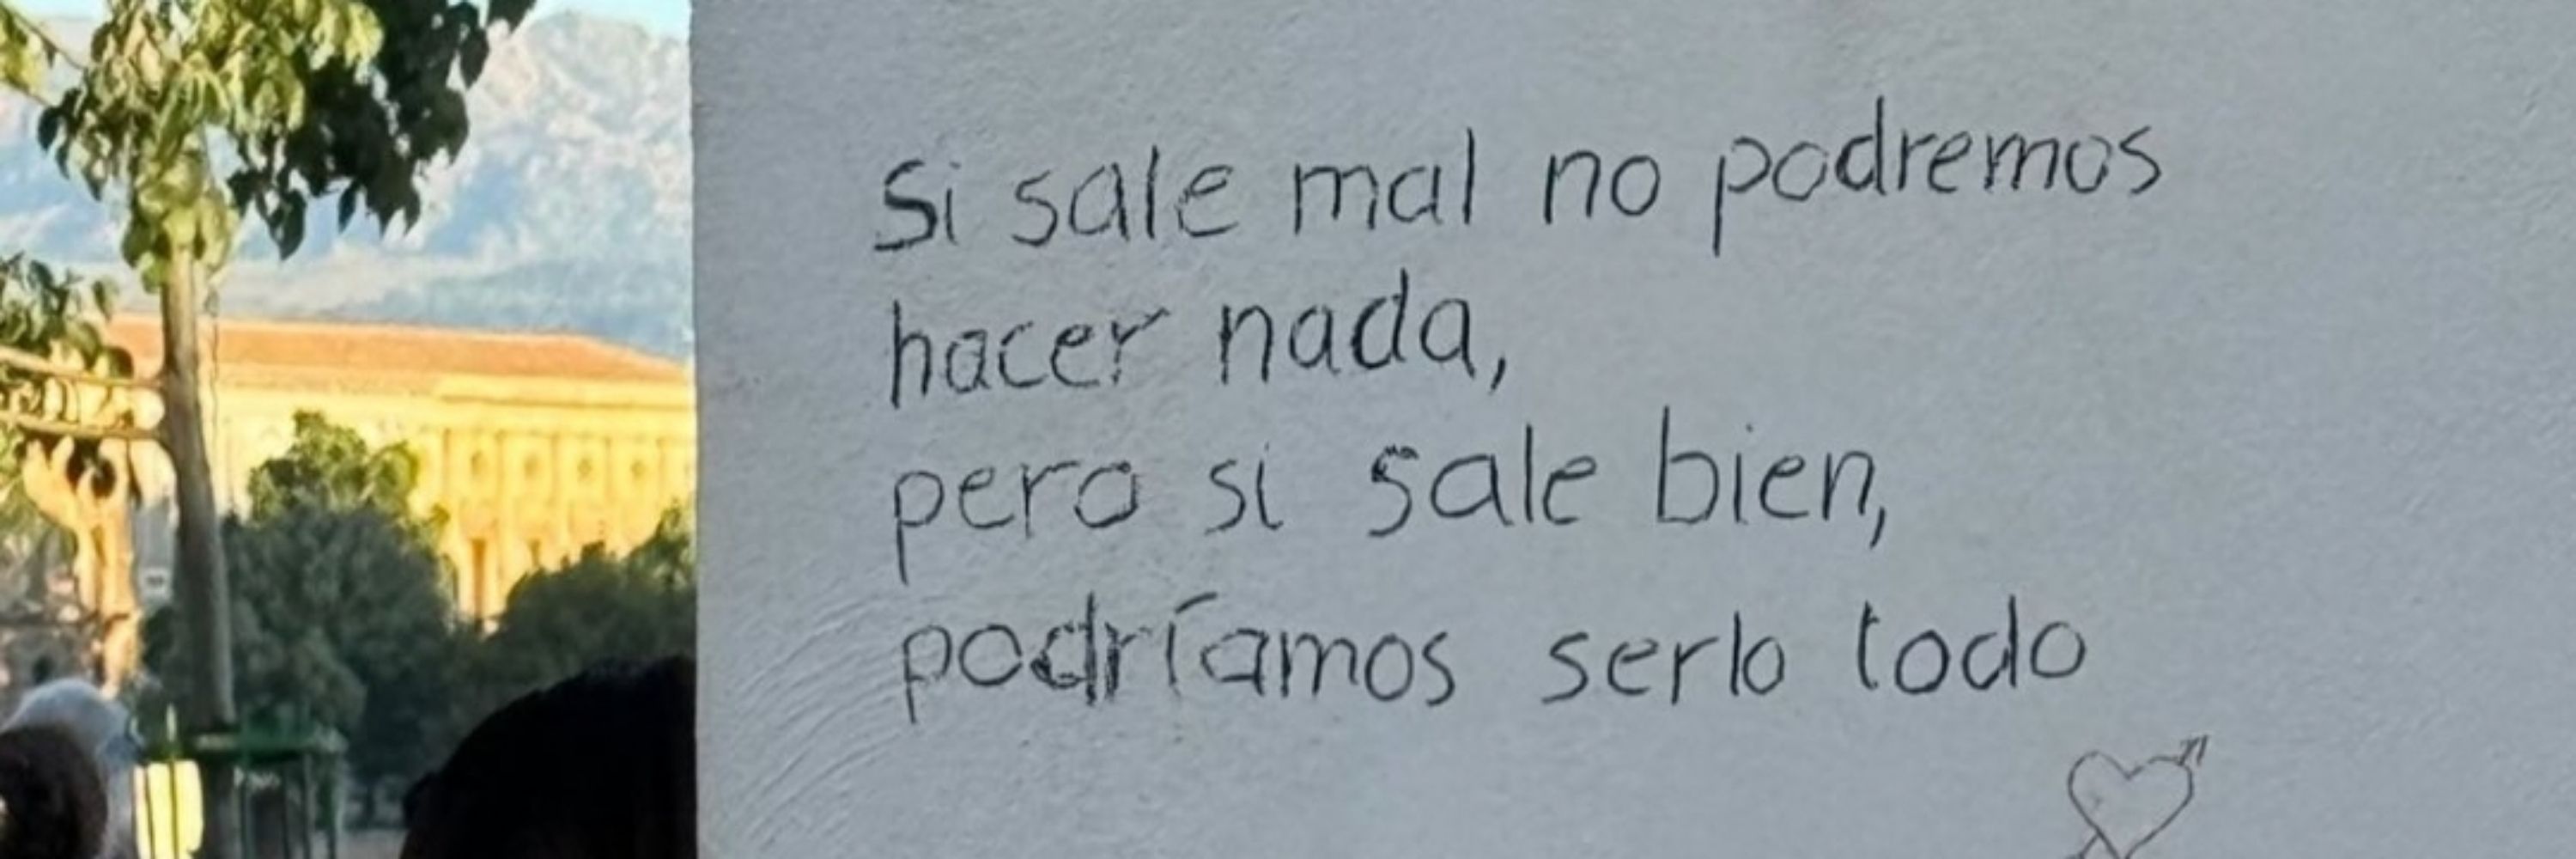 Si sale mal no podremos
hacer nada,
pero si sale bien,
podríamos serlo todo